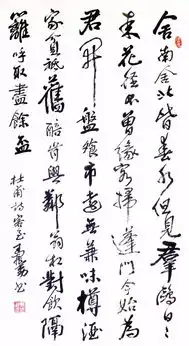 舍南舍北皆春水但見羣鷗日日
來花徑不曾緣客掃蓬門今始為
君開盤飧市遠無兼味樽酒
家貧祗舊醅肯與鄰翁相對飲隔
籬呼取盡餘盃
杜甫詩客至